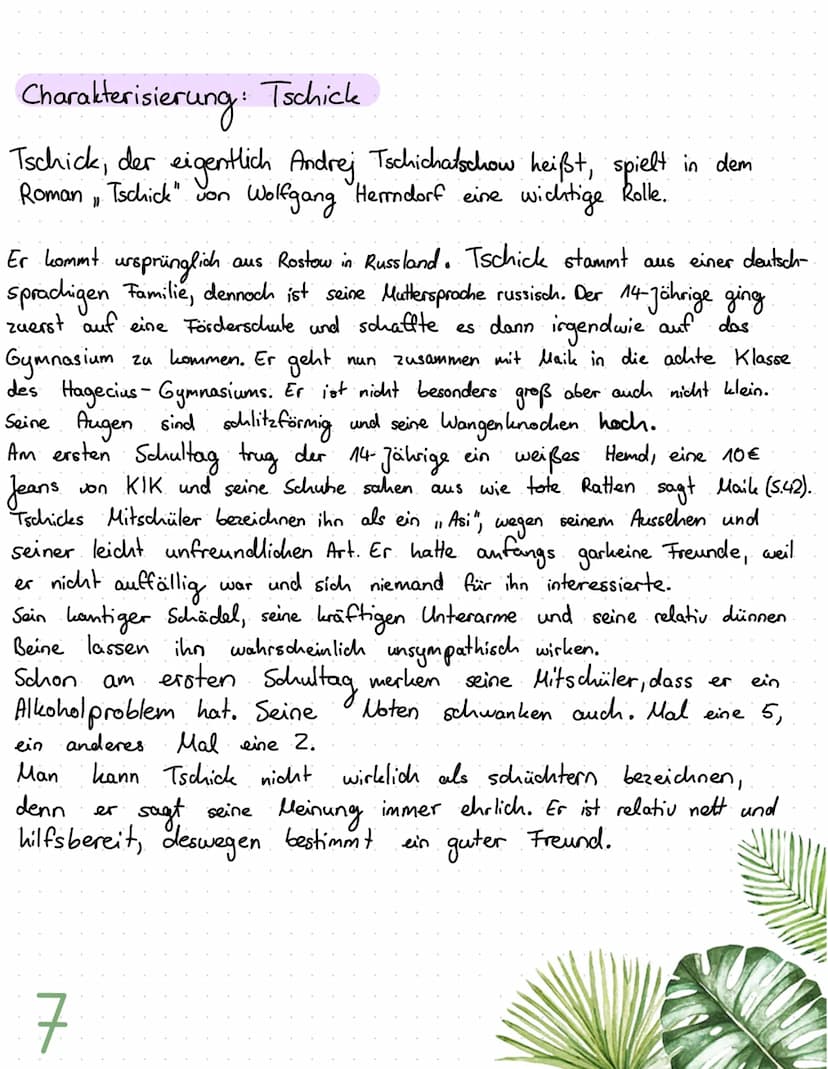 Charakterisierung: Tschick
Tschick, der eigentlich Andrej Tschichatschow heißt, spielt in dem
Roman „Tschick" von Wolfgang Herrndorf eine wichtige Rolle.
Er kommt ursprünglich aus Rostow in Russland. Tschick stammt aus einer deutsch-
sprachigen Familie, dennoch ist seine Muttersprache russisch. Der 14-Jährige ging
zuerst auf eine Förderschule und schaffte es dann irgendwie auf das
Gymnasium zu kommen. Er geht nun zusammen mit Maik in die achte Klasse
des Hagecius-Gymnasiums. Er ist nicht besonders groß aber auch nicht klein.
Seine Augen sind schlitzförmig und seine Wangenknochen hoch.
Am ersten Schultag trug der 14-Jährige ein weißes Hemd, eine 10€
Jeans von KIK und seine Schuhe sahen aus wie tote Ratten sagt Maik (S.42).
Tschicks Mitschüler bezeichnen ihn als ein „Asi", wegen seinem Aussehen und
seiner leicht unfreundlichen Art. Er hatte anfangs garkeine Freunde, weil
er nicht auffällig war und sich niemand für ihn interessierte.
Sein kantiger Schädel, seine kräftigen Unterarme und seine relativ dünnen
Beine lassen ihn wahrscheinlich unsympathisch wirken.
Schon am ersten Schultag merken seine Mitschüler, dass er ein
Alkoholproblem hat. Seine Noten schwanken auch. Mal eine 5,
ein anderes Mal eine 2.
Man kann Tschick nicht wirklich als schüchtern bezeichnen,
denn er sagt seine Meinung immer ehrlich. Er ist relativ nett und
hilfsbereit, deswegen bestimmt ein guter Freund.
7